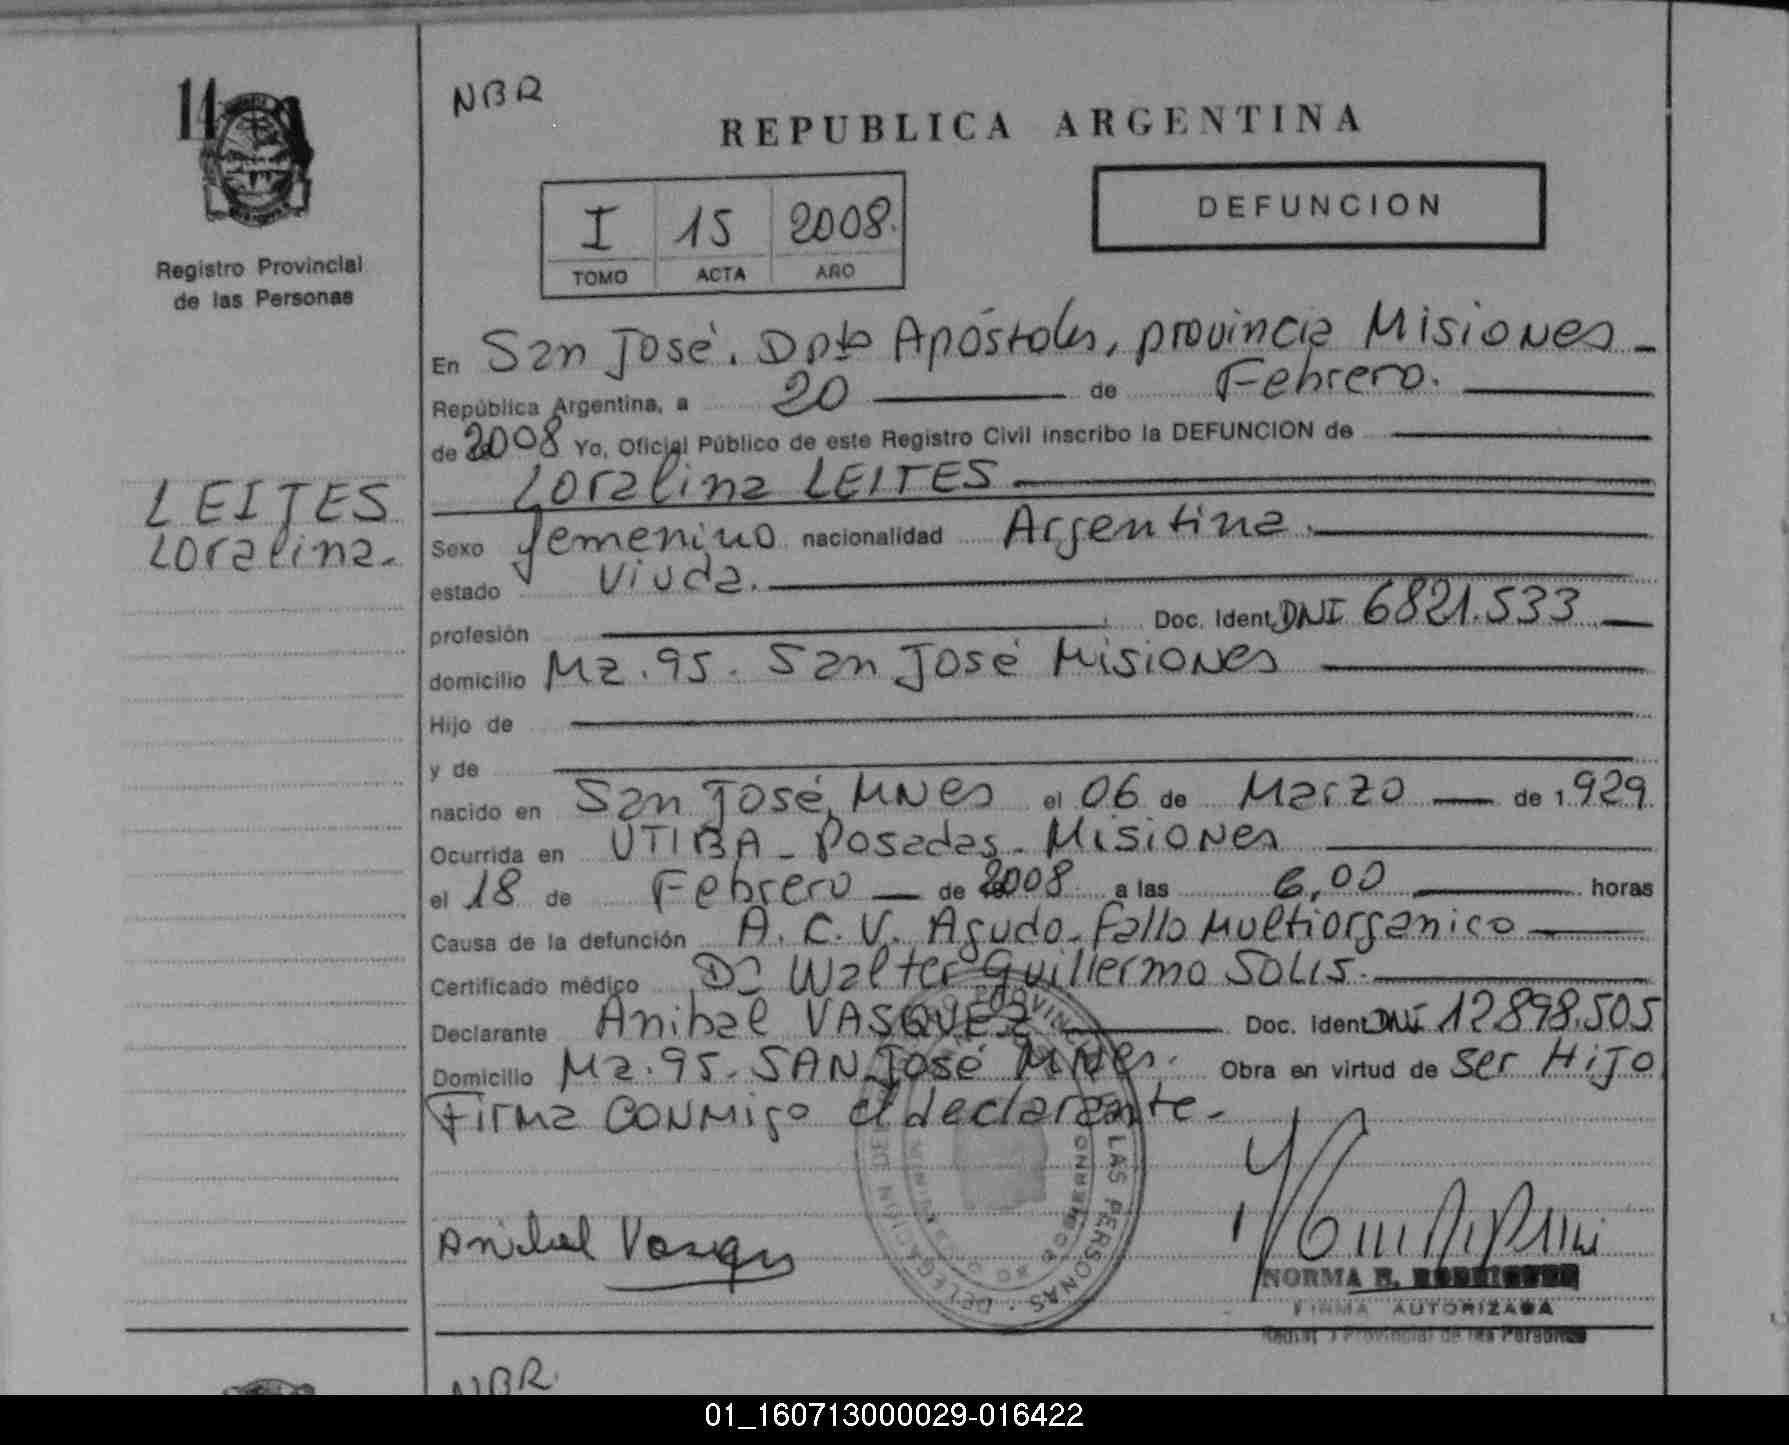 14
NBR
REPUBLICA ARGENTINA
I 15 2008.
TOMO ACTA AÑO
DEFUNCION
Registro Provincial
de las Personas
LEITES
Loralina.
En San José. Dpto Apóstoles, provincia Misiones
República Argentina, a 20 de Febrero.
de 2008 Yo, Oficial Público de este Registro Civil inscribo la DEFUNCION de
Loralina LEITES
Sexo femenino nacionalidad Argentina.
estado viuda.
profesión Doc. Ident. DNI 6821.533
domicilio Mz. 95. San José Misiones
Hijo de
y de
nacido en San José, MNes el 06 de Marzo de 1.929.
Ocurrida en UTIBA - Posadas - Misiones
el 18 de Febrero de 2008 a las 6,00 horas
Causa de la defunción A. C. V. Agudo - fallo Multiorganico
Certificado médico Dr Walter Guillermo SOLIS.
Declarante Anibal VASQUEZ Doc. Ident. DNI 12898.505
Domicilio Mz. 95. SAN José MNes. Obra en virtud de ser Hijo
Firma CONMigo el declarante.
Anibal Vasquez
NORMA
FIRMA AUTORIZADA
Provincial de las Personas
LAS PERSONAS - DELEGACION DE
NBR.
01_160713000029-016422